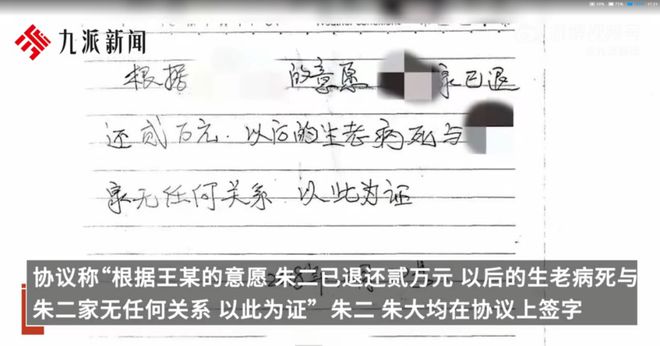 九派新闻
Weather Conditions
根据 的意愿 家已退
还贰万元.以后的生老病死与
家无任何关系 以此为证
协议称“根据王某的意愿 朱二已退还贰万元 以后的生老病死与
朱二家无任何关系 以此为证” 朱二 朱大均在协议上签字